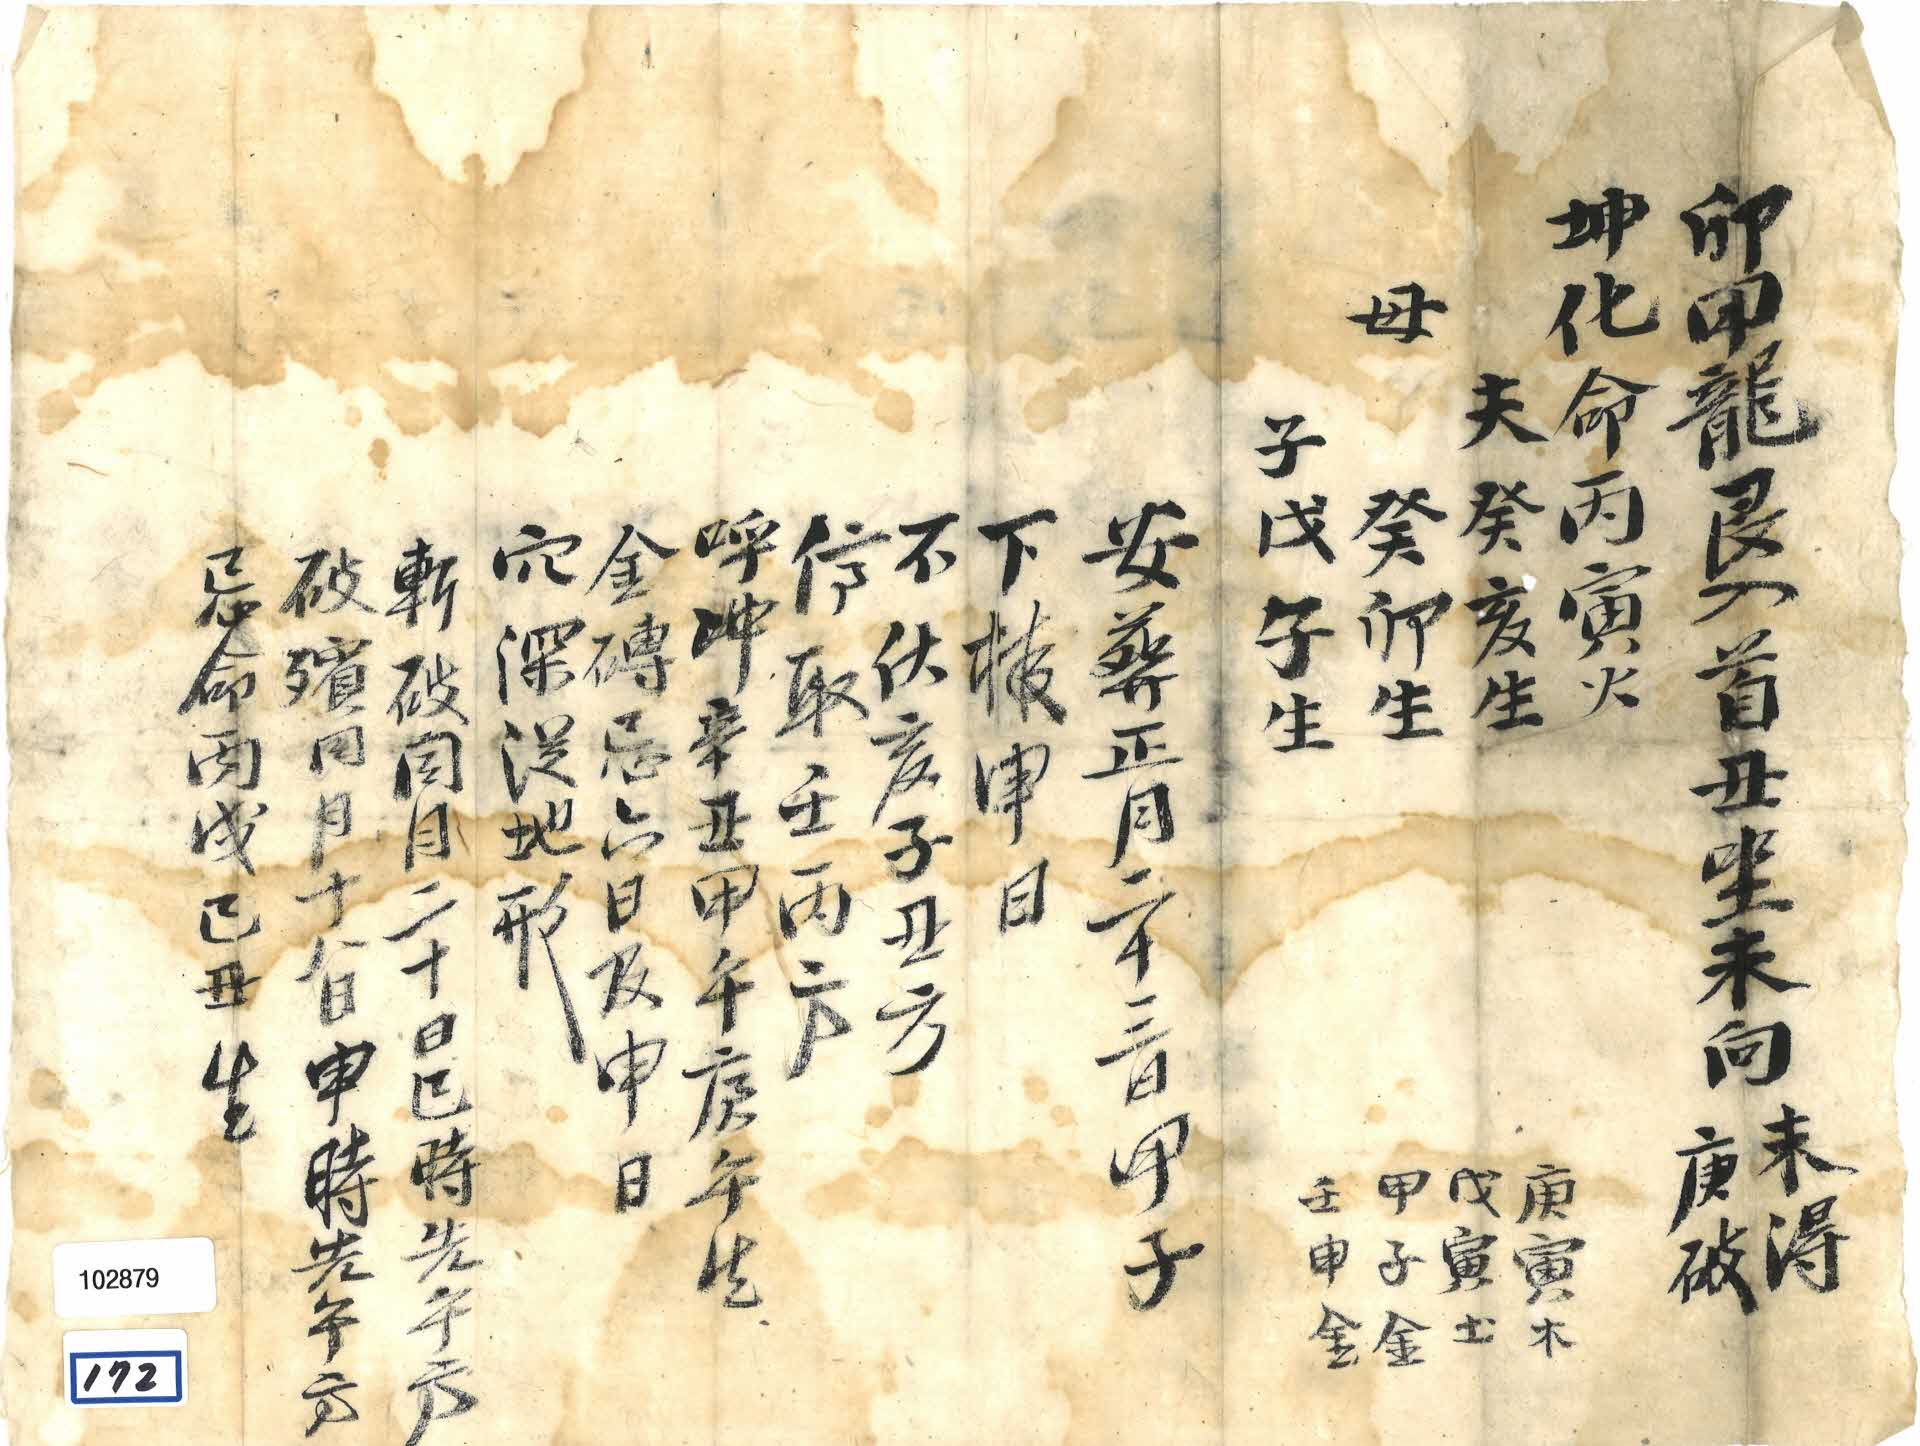 卯甲龍艮入首丑坐未向 未得 庚破
坤化命丙寅火
夫癸亥生
母 癸卯生
子戊子生
庚寅木
戊寅土
甲子金
壬申金
安葬正月二十三日甲子
下棺申日
不伏亥子丑方
停取壬丙方
呼冲辛丑甲午庚午生
金磚忌六日及申日
穴深從地形
斬破同月二十日巳時先午方
破殯同月十八日申時先午方
忌命丙戌己丑生
102879
172